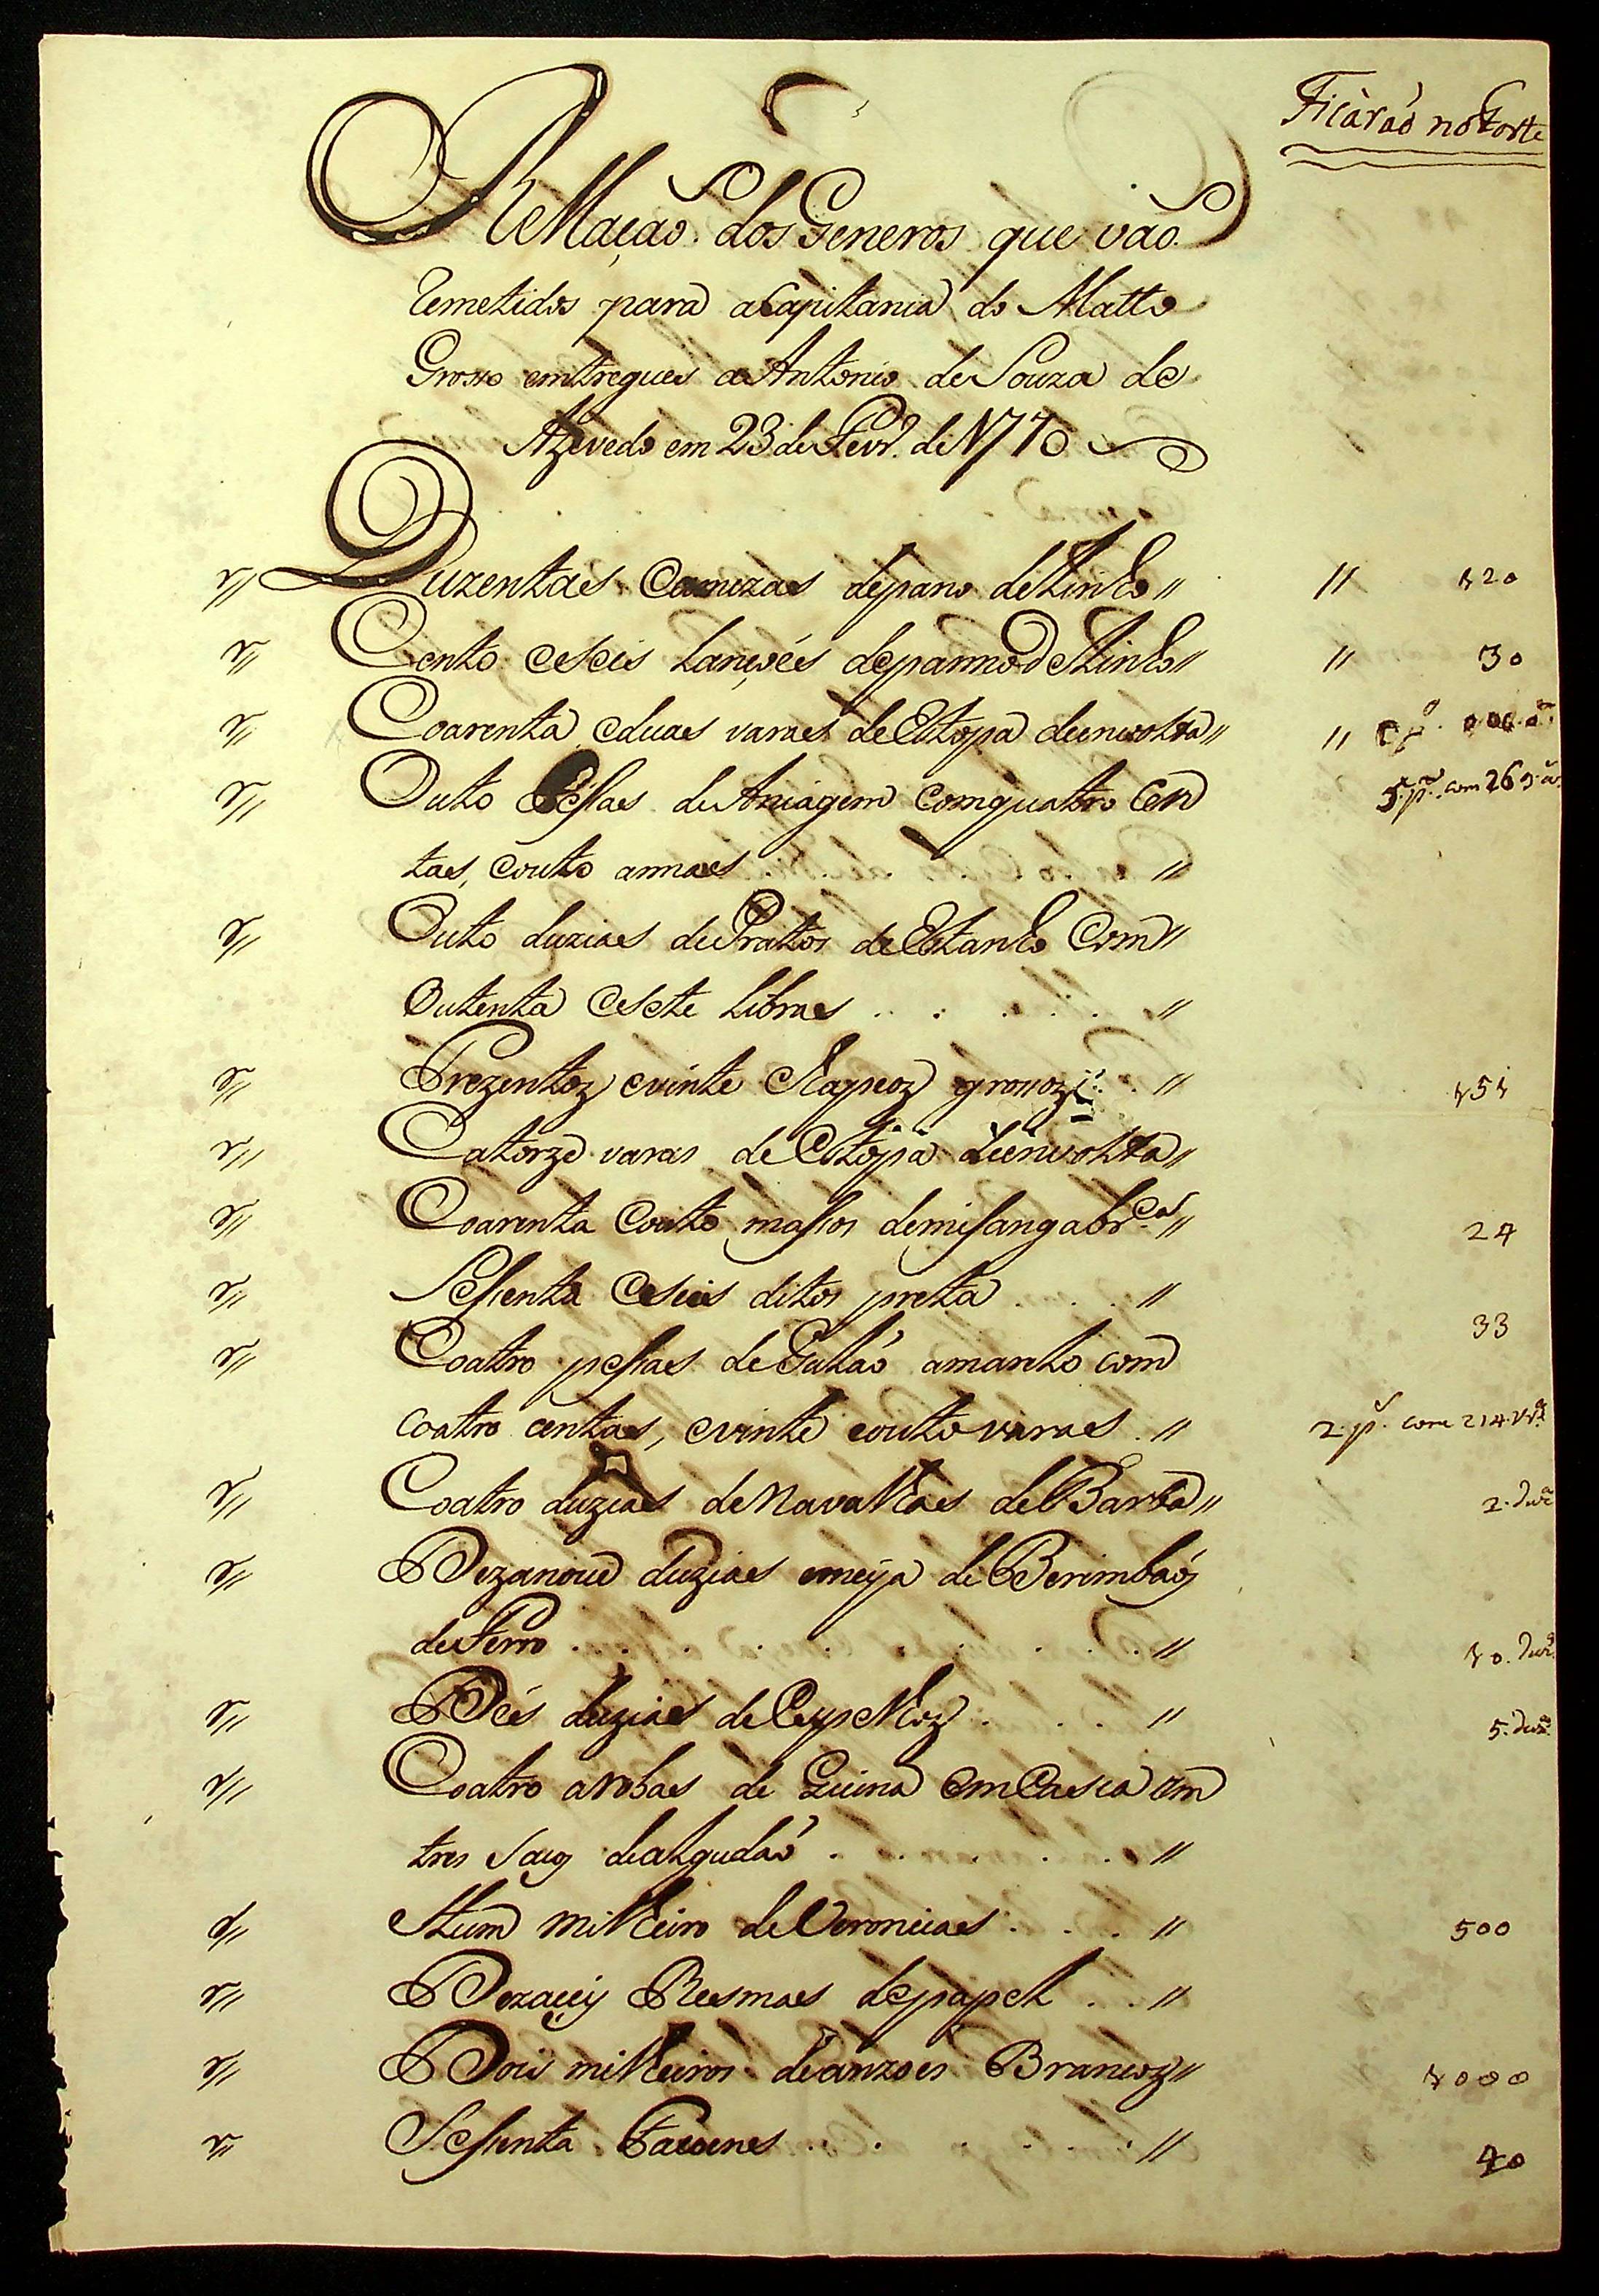 Ficaráõ no Forte
Rellação dos Generos que vão
Remetidos para a Capitania do Matto
Grosso emtregues a Antonio de Souza de
Azevedo em 23 de Fevr.º de 1770
r// Duzentas Camizas de pano de Linho // // 120
r// Cento e seis Lançoés de panno de Linho // // 30
r// Coarenta e duas varas de Estopa de emvolta // //
r// Outo Pessas de Aniagem com quatro Cen 5. p.ˢ com 269 a.ˢ
tas, e outo annas //
r// Outo duzias de Pratos de Estanho Com //
Outenta e sete Libras . . . . . //
r// Trezentoz e vinte Chapeoz grossoz . . // 151
r// Catorze varas de Estopa de emvolta //
r// Coarenta e outo massos de missanga br.ᶜᵃ // 24
r// Sessenta e seis ditos preta . . . // 33
r// Coattro pessas de Galaó amarelo com
coatro centas, e vinte e outo varas . // 2. p.ˢ com 214. vr.ˢ
r// Coatro duzias de Navalhas de Barba // 2. duz.ˢ
r// Dezanove duzias e meya de Berimbaós
de Ferro . . . . . . . // 10. duz.ˢ
r// Dés duzias de Espelhoz . . . // 5. duz.ˢ
r// Coatro arrobas de Quina em Casca em
tres Sacoz de algudaó . . . . . //
r// Hum milheiro de Veronicas . . . // 500
r// Dezaceis Resmas de papel . . //
r// Dois milheiros de anzoes Brancoz // 1000
r// Sessenta Facoens . . . . . // 40